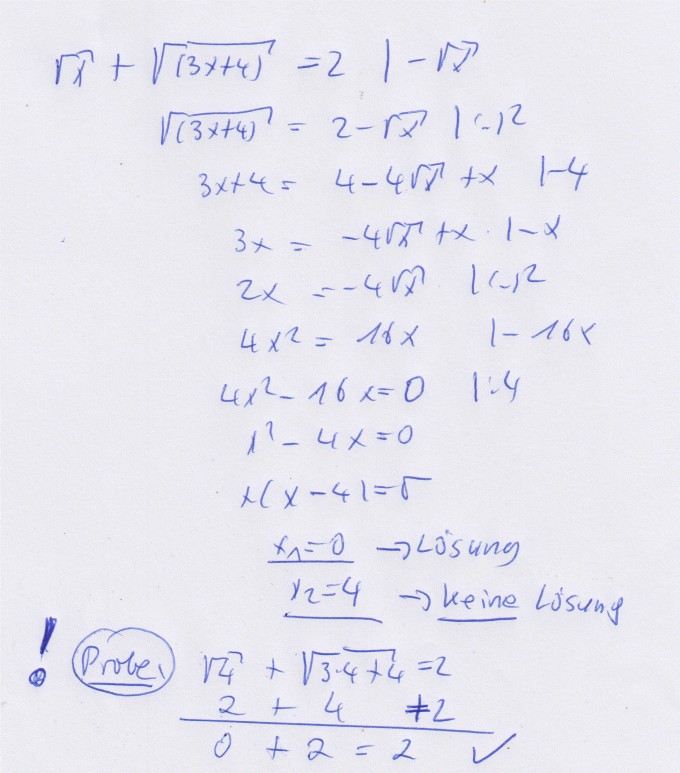 √x + √(3x+4) = 2 | - √x
√(3x+4) = 2 - √x | (..)²
3x+4 = 4 - 4√x + x |-4
3x = -4√x + x | - x
2x = -4√x | (..)²
4x² = 16x | - 16x
4x² - 16x = 0 | :4
x² - 4x = 0
x(x - 4) = 0
x₁ = 0 → Lösung
x₂ = 4 → keine Lösung
! Probe: √4 + √3·4+4 = 2
2 + 4 ≠ 2
0 + 2 = 2 ✓